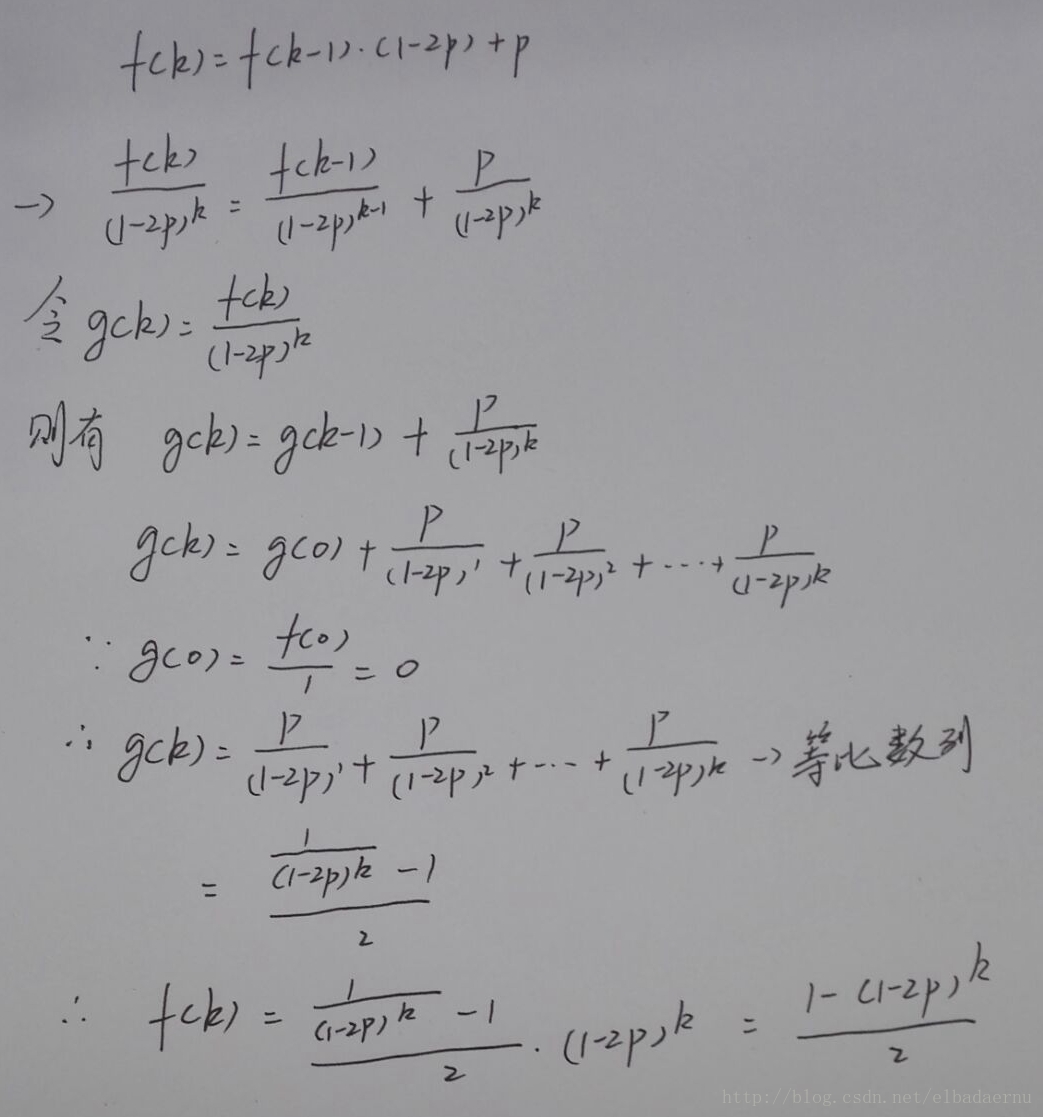 f(k) = f(k-1)·(1-2p) + p
→ f(k)/(1-2p)^k = f(k-1)/(1-2p)^(k-1) + p/(1-2p)^k
令 g(k) = f(k)/(1-2p)^k
则有 g(k) = g(k-1) + p/(1-2p)^k
g(k) = g(0) + p/(1-2p)^1 + p/(1-2p)^2 + ··· + p/(1-2p)^k
∵ g(0) = f(0)/1 = 0
∴ g(k) = p/(1-2p)^1 + p/(1-2p)^2 + ··· + p/(1-2p)^k → 等比数列
= (1/(1-2p)^k - 1)/2
∴ f(k) = (1/(1-2p)^k - 1)/2 · (1-2p)^k = (1-(1-2p)^k)/2
http://blog.csdn.net/elbadaernu